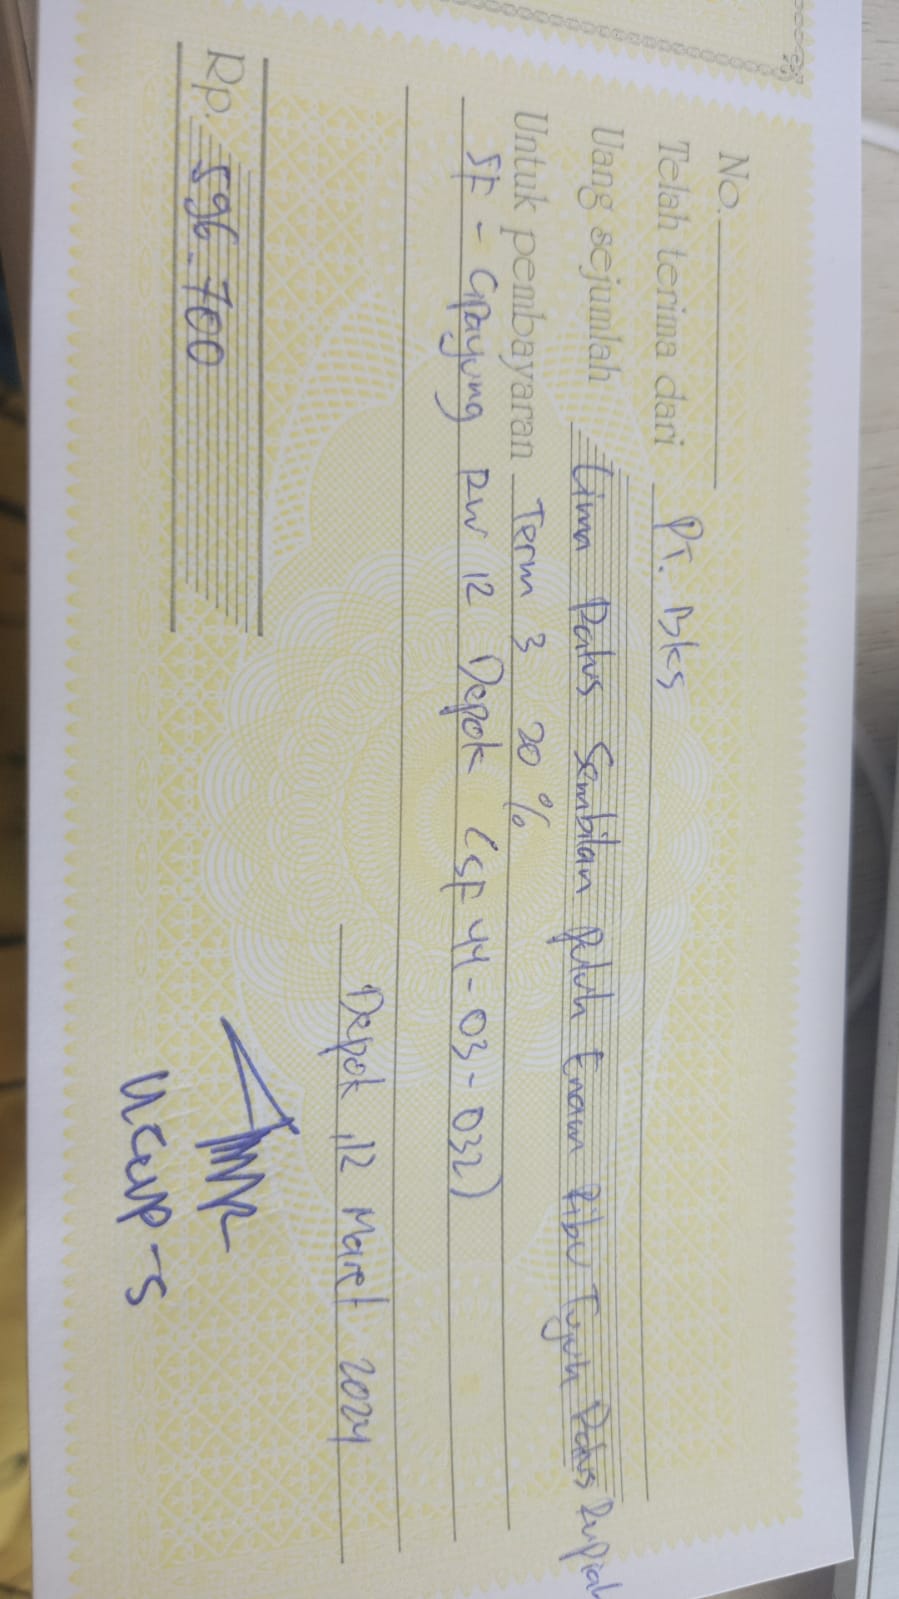 No.
Telah terima dari PT. Bks
Uang sejumlah Lima Ratus Sembilan puluh Enam Ribu Tujuh Ratus Rupiah
Untuk pembayaran Term 3 20 %
SF - Cipayung RW 12 Depok (SF 44-03-032)
Depok, 12 Maret 2024
Rp. 596.700
Ucup-s